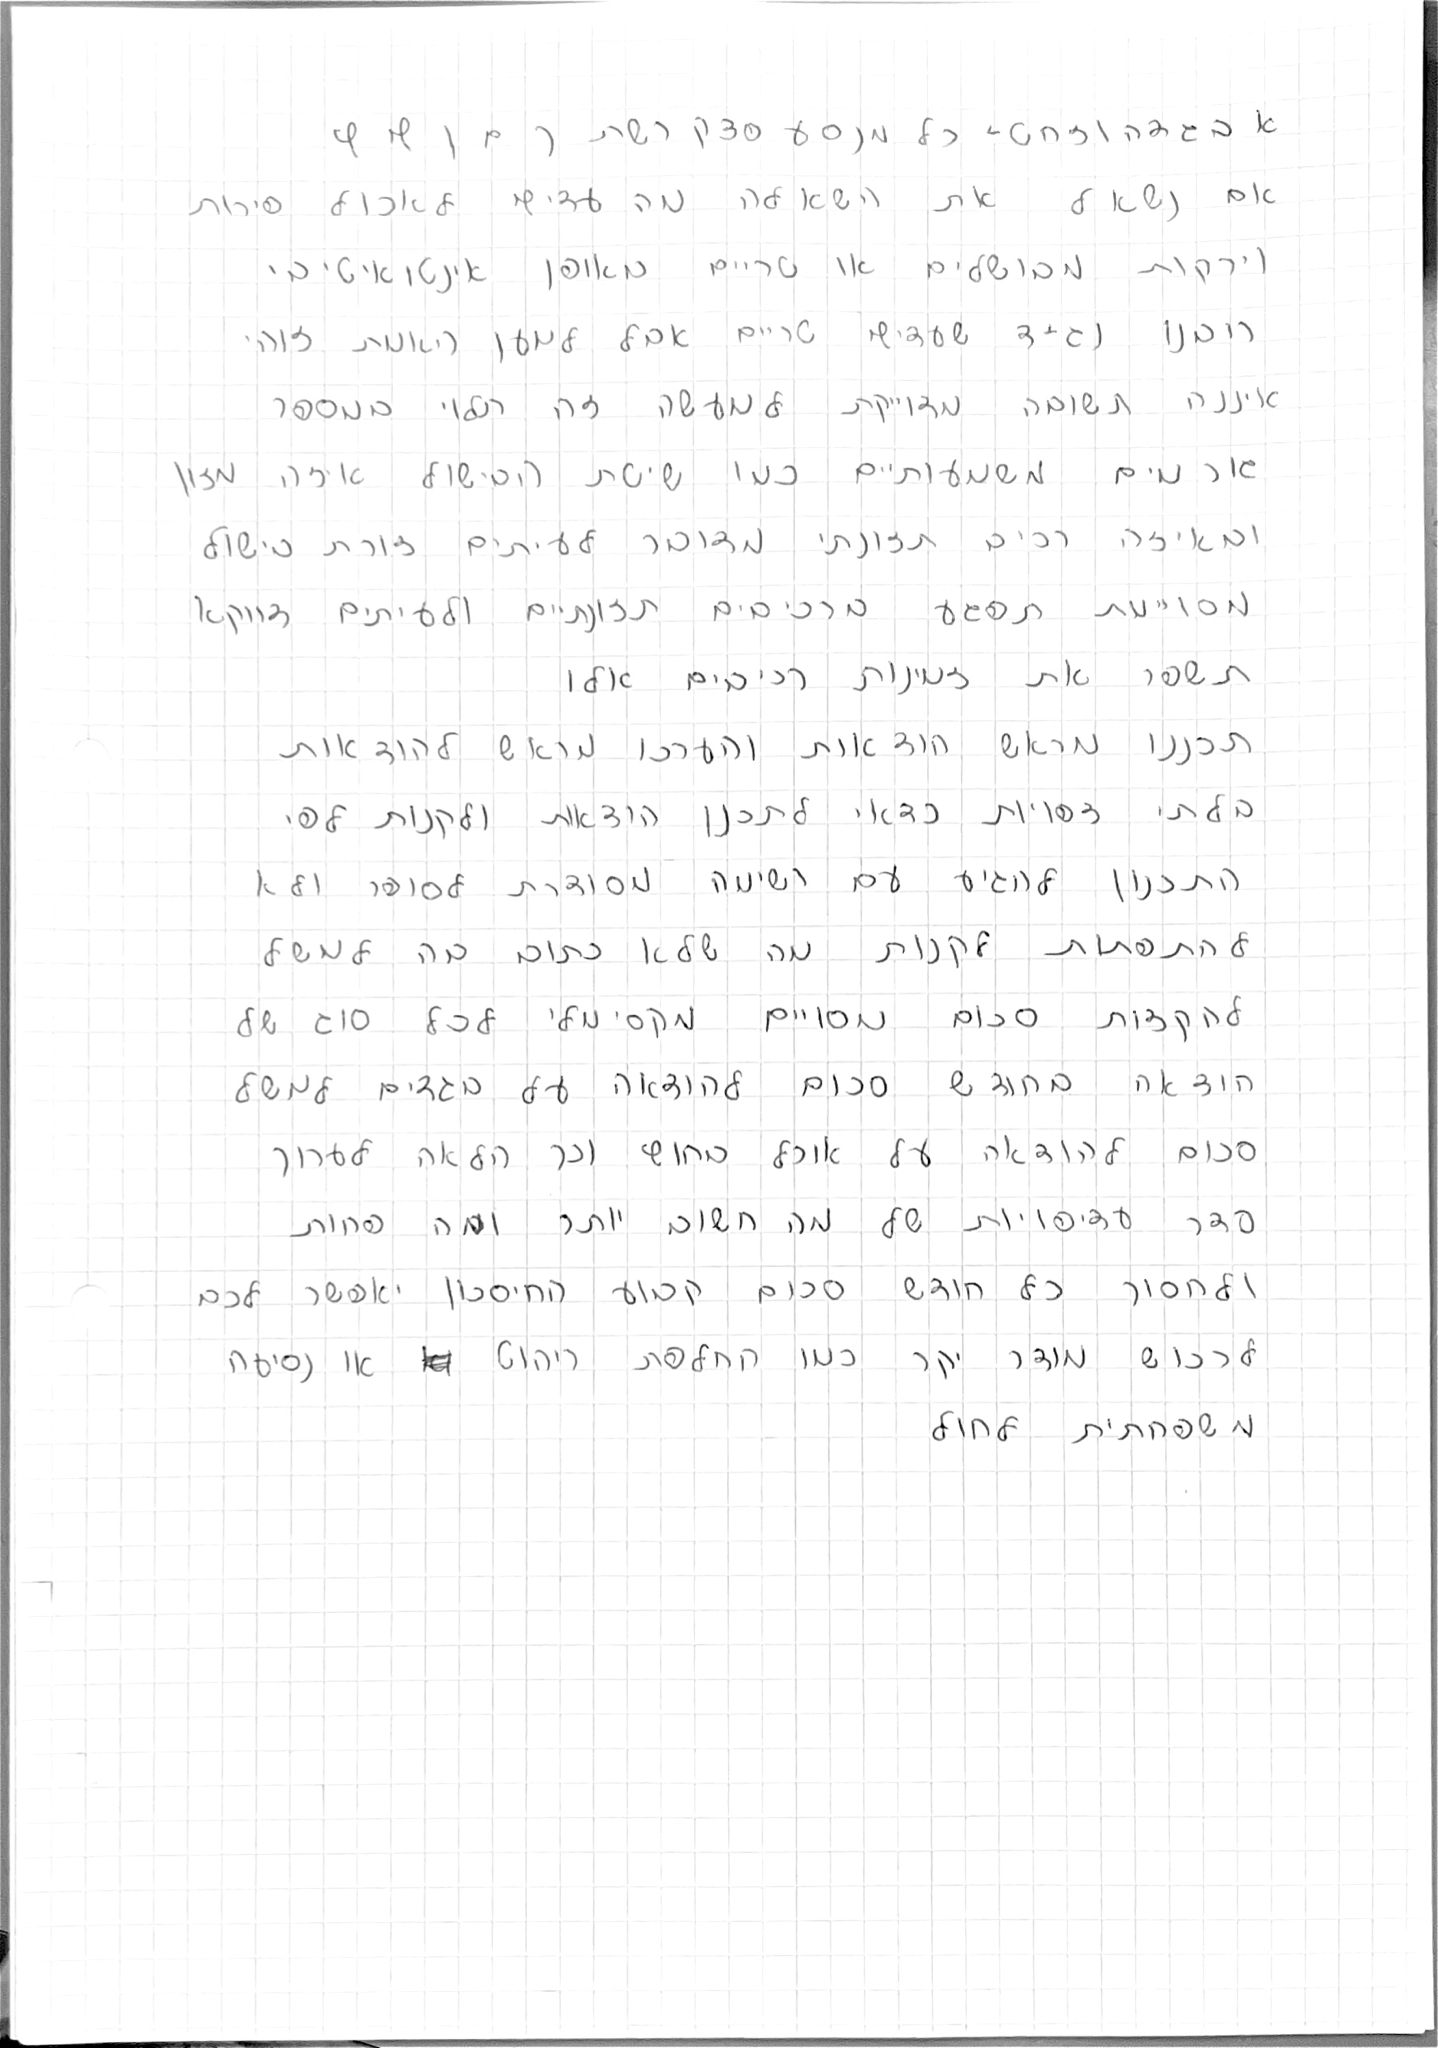 א ב ג ד ה ו ז ח ט י כ ל מ נ ס ע פ צ ק ר ש ת ך ם ן ף ץ
אם נשאל את השאלה מה עדיף לאכול פירות
וירקות מבושלים או טריים באופן אינטואיטיבי
רובנו נגיד שעדיף טריים אבל למען האמת זוהי
איננה תשובה מדוייקת למעשה זה תלוי במספר
גורמים משמעותיים כמו שיטת הבישול איזה מזון
ובאיזה רכיב תזונתי מדובר לעיתים צורת בישול
מסויימת תפגע ברכיבים תזונתיים ולעיתים דווקא
תשפר את זמינות רכיבים אלו
תכננו מראש הוצאות והערכו מראש להוצאות
בלתי צפויות כדאי לתכנן הוצאות ולקנות לפי
התכנון להגיע עם רשימה מסודרת לסופר ולא
להתפתות לקנות מה שלא כתוב בה למשל
להקצות סכום מסויים מקסימלי לכל סוג של
הוצאה בחודש סכום להוצאה על בגדים למשל
סכום להוצאה על אוכל בחוץ וכך הלאה לערוך
סדר עדיפויות של מה חשוב יותר ומה פחות
ולחסוך כל חודש סכום קבוע החיסכון יאפשר לכם
לרכוש מוצר יקר כמו החלפת ריהוט או נסיעה
משפחתית לחול